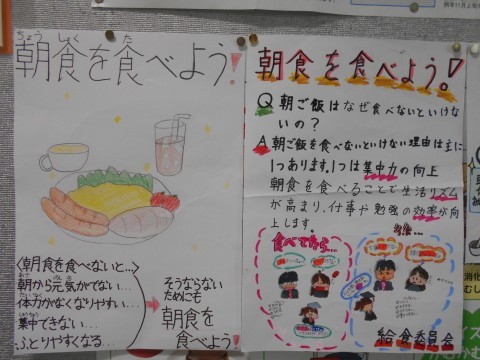 ちょう しょく た
朝食を食べよう!
〈朝食を食べないと…〉
朝から元気がでない…
体力がなくなりやすい…
集中できない…
ふとりやすくなる…
そうならない
ためにも
朝食を
食べよう!
朝食を食べよう!
Q 朝ご飯はなぜ食べないといけな
いの?
A 朝ご飯を食べないといけない理由は主に
1つあります。1つは集中力の向上
朝食を食べることで生活リズム
が高まり、仕事や勉強の効率が向
上します。
食べてたら…
給食委員会